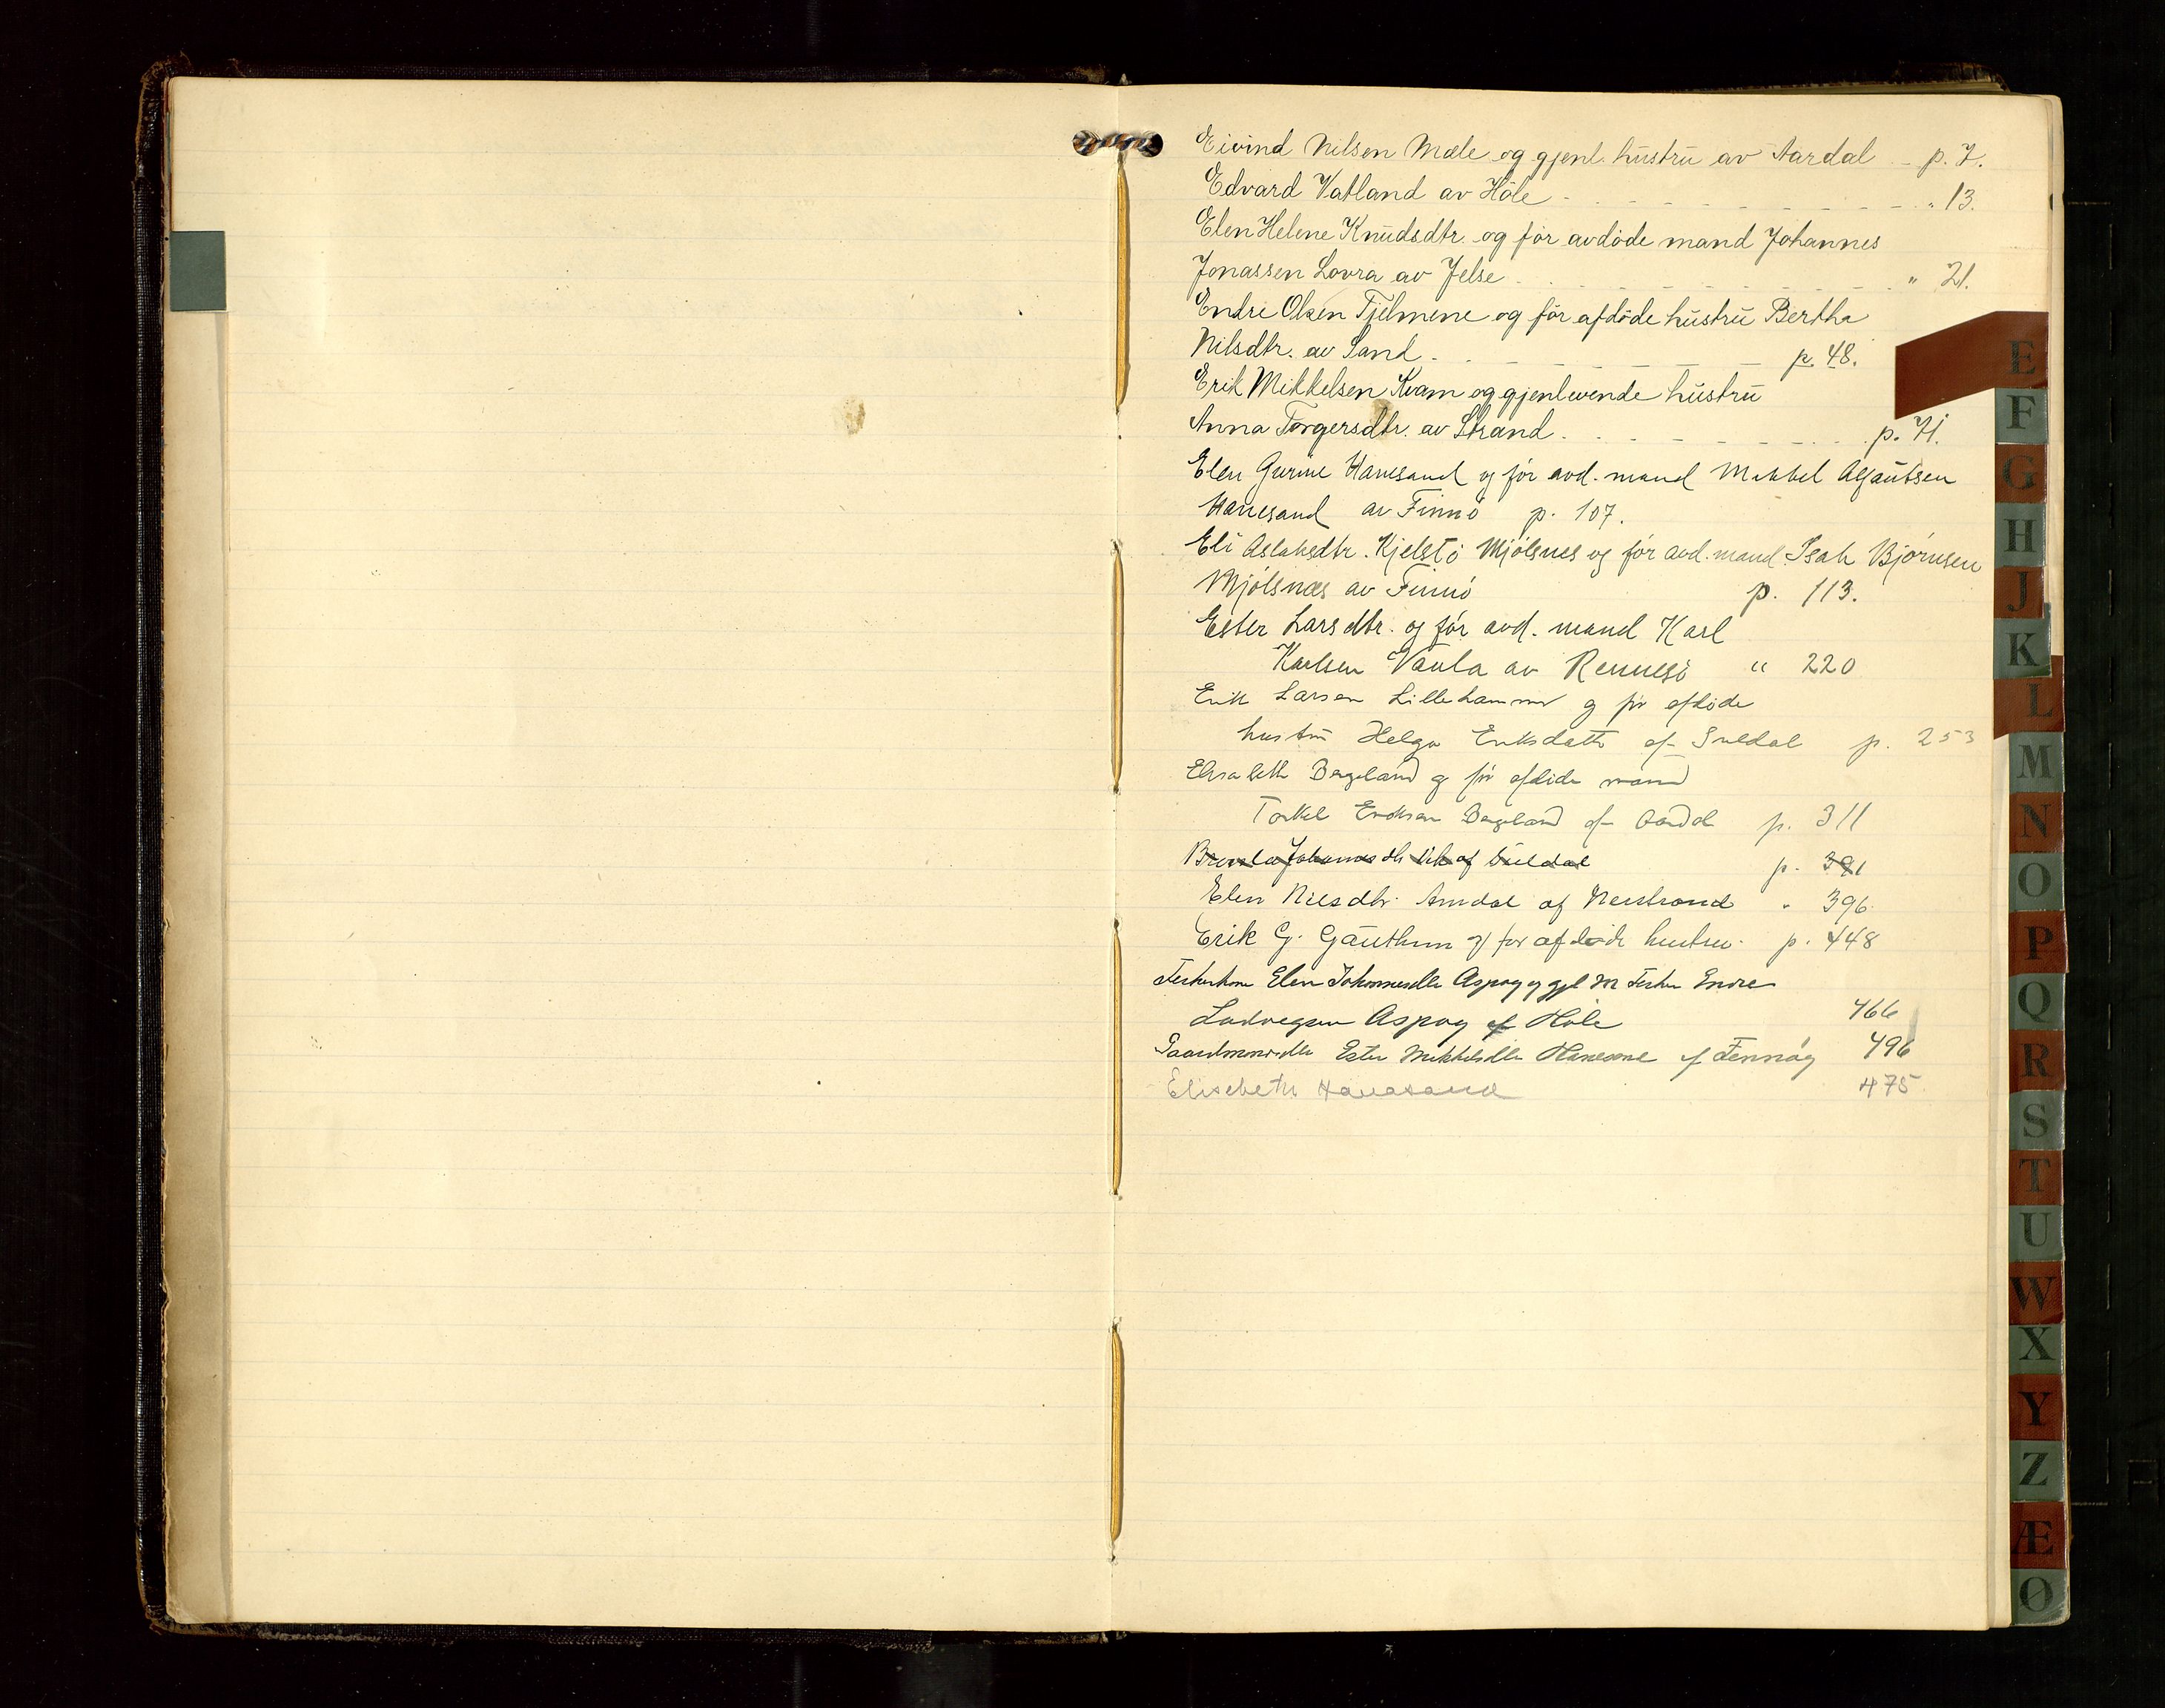 Eivind Nilsen Mæle og gjenl. hustru av Aardal - p. 7.
Edvard Vatland av Høle " 13.
Elen Helene Knudsdtr. og før avdøde mand Johannes
Jonassen Lovra av Jelse " 21.
Endre Olsen Tjelmene og før afdøde hustru Bertha
Nilsdtr. av Sand p. 48.
Erik Mikkelsen Kvam og gjenlevende hustru
Anna Torgersdtr. av Strand p. 71.
Elen Gurine Hanesand og før avd. mand Mikkel Asgautsen
Hanesand av Finnø p. 107.
Eli Aslaksdtr. Kjelstø Mjølsnes og før avd. mand Isak Bjørnsen
Mjølsnæs av Finnø p. 113.
Ester Larsdtr. og før avd. mand Karl
Karlsen Vaula av Rennesø " 220
Erik Larsen Lillehammer og før afdøde
hustru Helga Eriksdatter af Suldal p. 253
Elisabeth Bergeland og før afdøde mand
Torkel Eriksen Bergeland af Aardal p. 311
Johannesdtr af Suldal p. 391
Elen Nilsdtr. Amdal af Nerstrand " 396
Erik G. Gauthun og før afdøde hustru p. 448
Elen Johannesdtr Aspøy og gjl m Endre
Ludvigsen Aspøy af Høle 466
Ester Mikkelsdtr Hanesand af Fennøy 496
Elisebeth Hanasand 475
E
F
G
H
J
K
L
M
N
O
P
Q
R
S
T
U
W
X
Y
Z
Æ
Ø